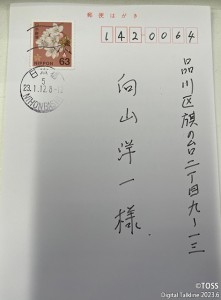 郵便はがき
142-0064
NIPPON
63
23.1.12
NIHONBASHI
品川区旗の台二丁目九-一三
向山洋一様
©TOSS
Digital Talkline 2023.6